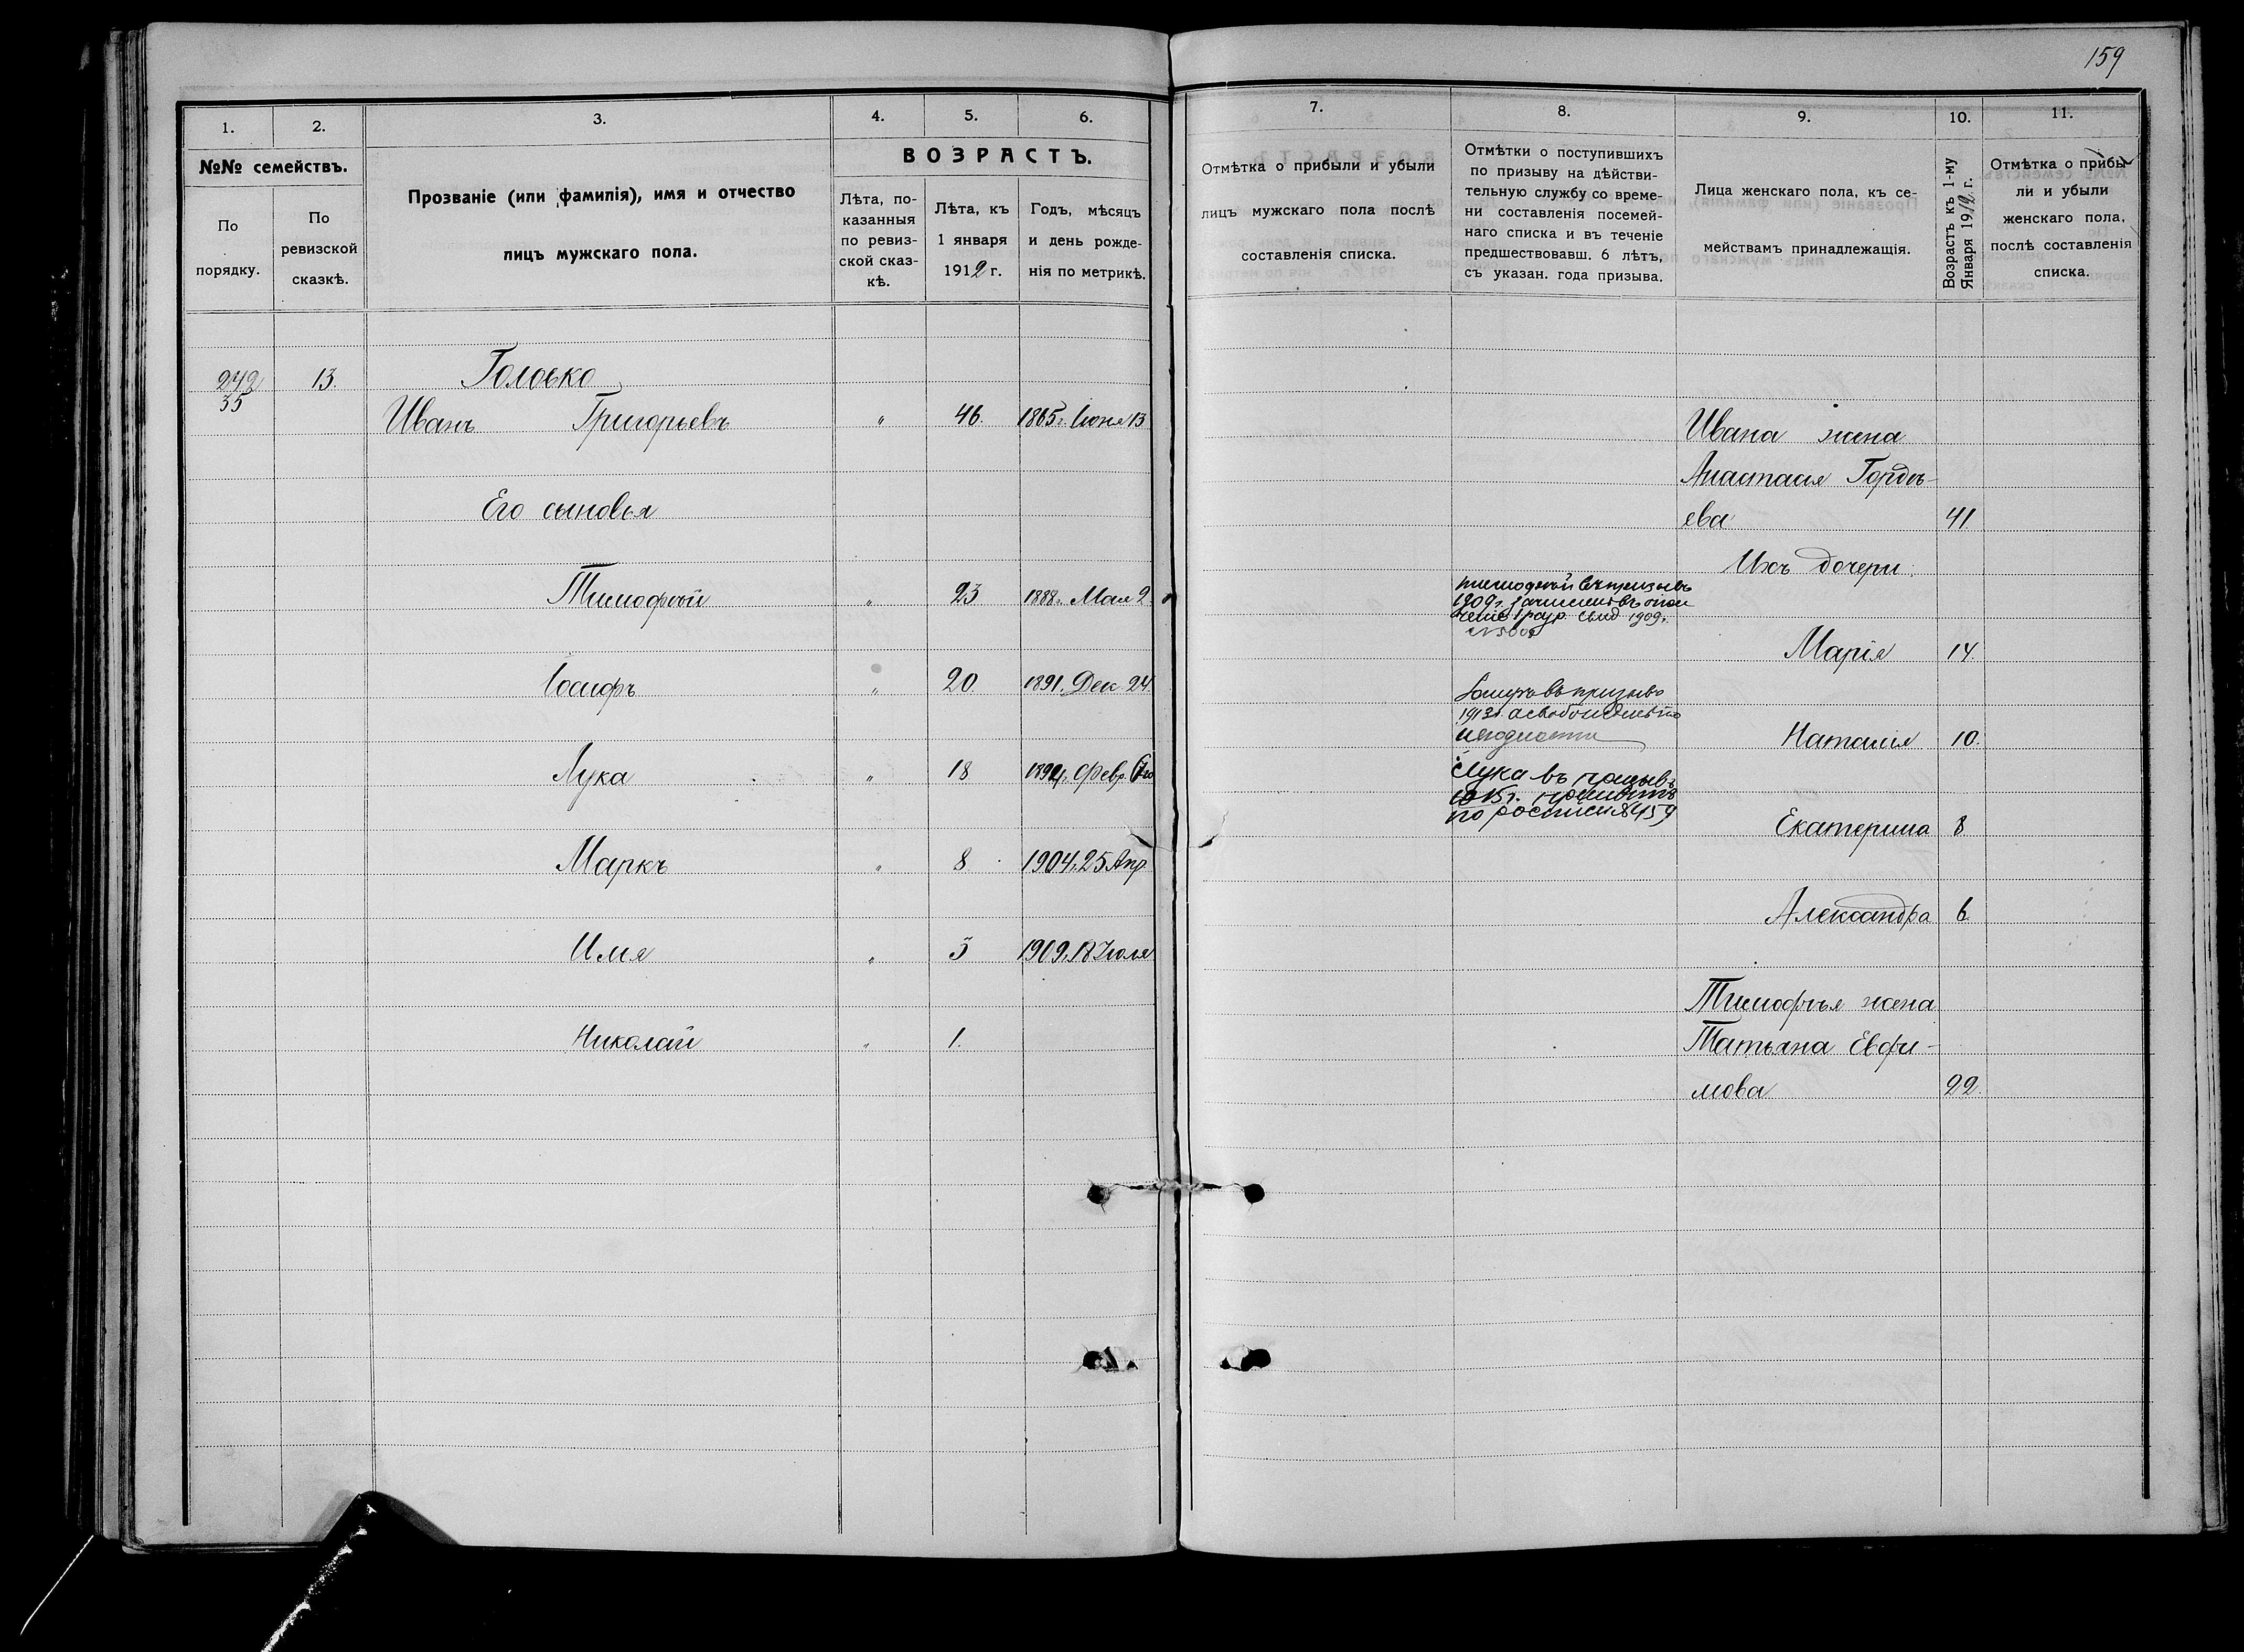 159
1.
2.
3.
4.
5.
6.
№№ семействъ.
По порядку.
По ревизской сказкѣ.
Прозваніе (или фамилія), имя и отчество
лицъ мужскаго пола.
ВОЗРАСТЪ.
Лѣта, по-
казанныя
по ревиз-
ской сказ-
кѣ.
Лѣта, къ
1 января
1912 г.
Годъ, мѣсяцъ
и день рожде-
нія по метрикѣ.
242 13.
35
Голоько
Иванъ Григорьевъ " 46. 1865 г. Іюня 13
Его сыновья
Тимофей " 23 1888 г. Мая 2
Іосифъ " 20 1891. Дек 24.
Лука " 18 1894, Февр.
Маркъ " 8 1904, 25 Апр
Илья " 3 1909, 18 Іюля
Николай " 1.
7.
8.
9.
10.
11.
Отмѣтка о прибыли и убыли
лицъ мужскаго пола послѣ
составленія списка.
Отмѣтки о поступившихъ
по призыву на дѣйстви-
тельную службу со време-
ни составленія посемей-
наго списка и въ теченіе
предшествовавш. 6 лѣтъ,
съ указан. года призыва.
Лица женскаго пола, къ се-
мействамъ принадлежащія.
Возрастъ къ 1-му
Января 1912 г.
Отмѣтка о прибы-
ли и убыли
женскаго пола,
послѣ составленія
списка.
Тимофей въ призывъ
1909 г. зачисленъ въ опол
ченіе 1 разр. свид 1909 г.
Іосифъ въ призывъ
1913 г. освобожденъ по
негодности
Лука въ призывъ
1915 г. принятъ
по росписи № 159
Ивана жена
Анастасія Гордѣ-
ева 41
Ихъ дочери
Марія 14
Наталія 10.
Екатерина 8
Александра 6
Тимофѣя жена
Татьяна Евфи-
мова 22.